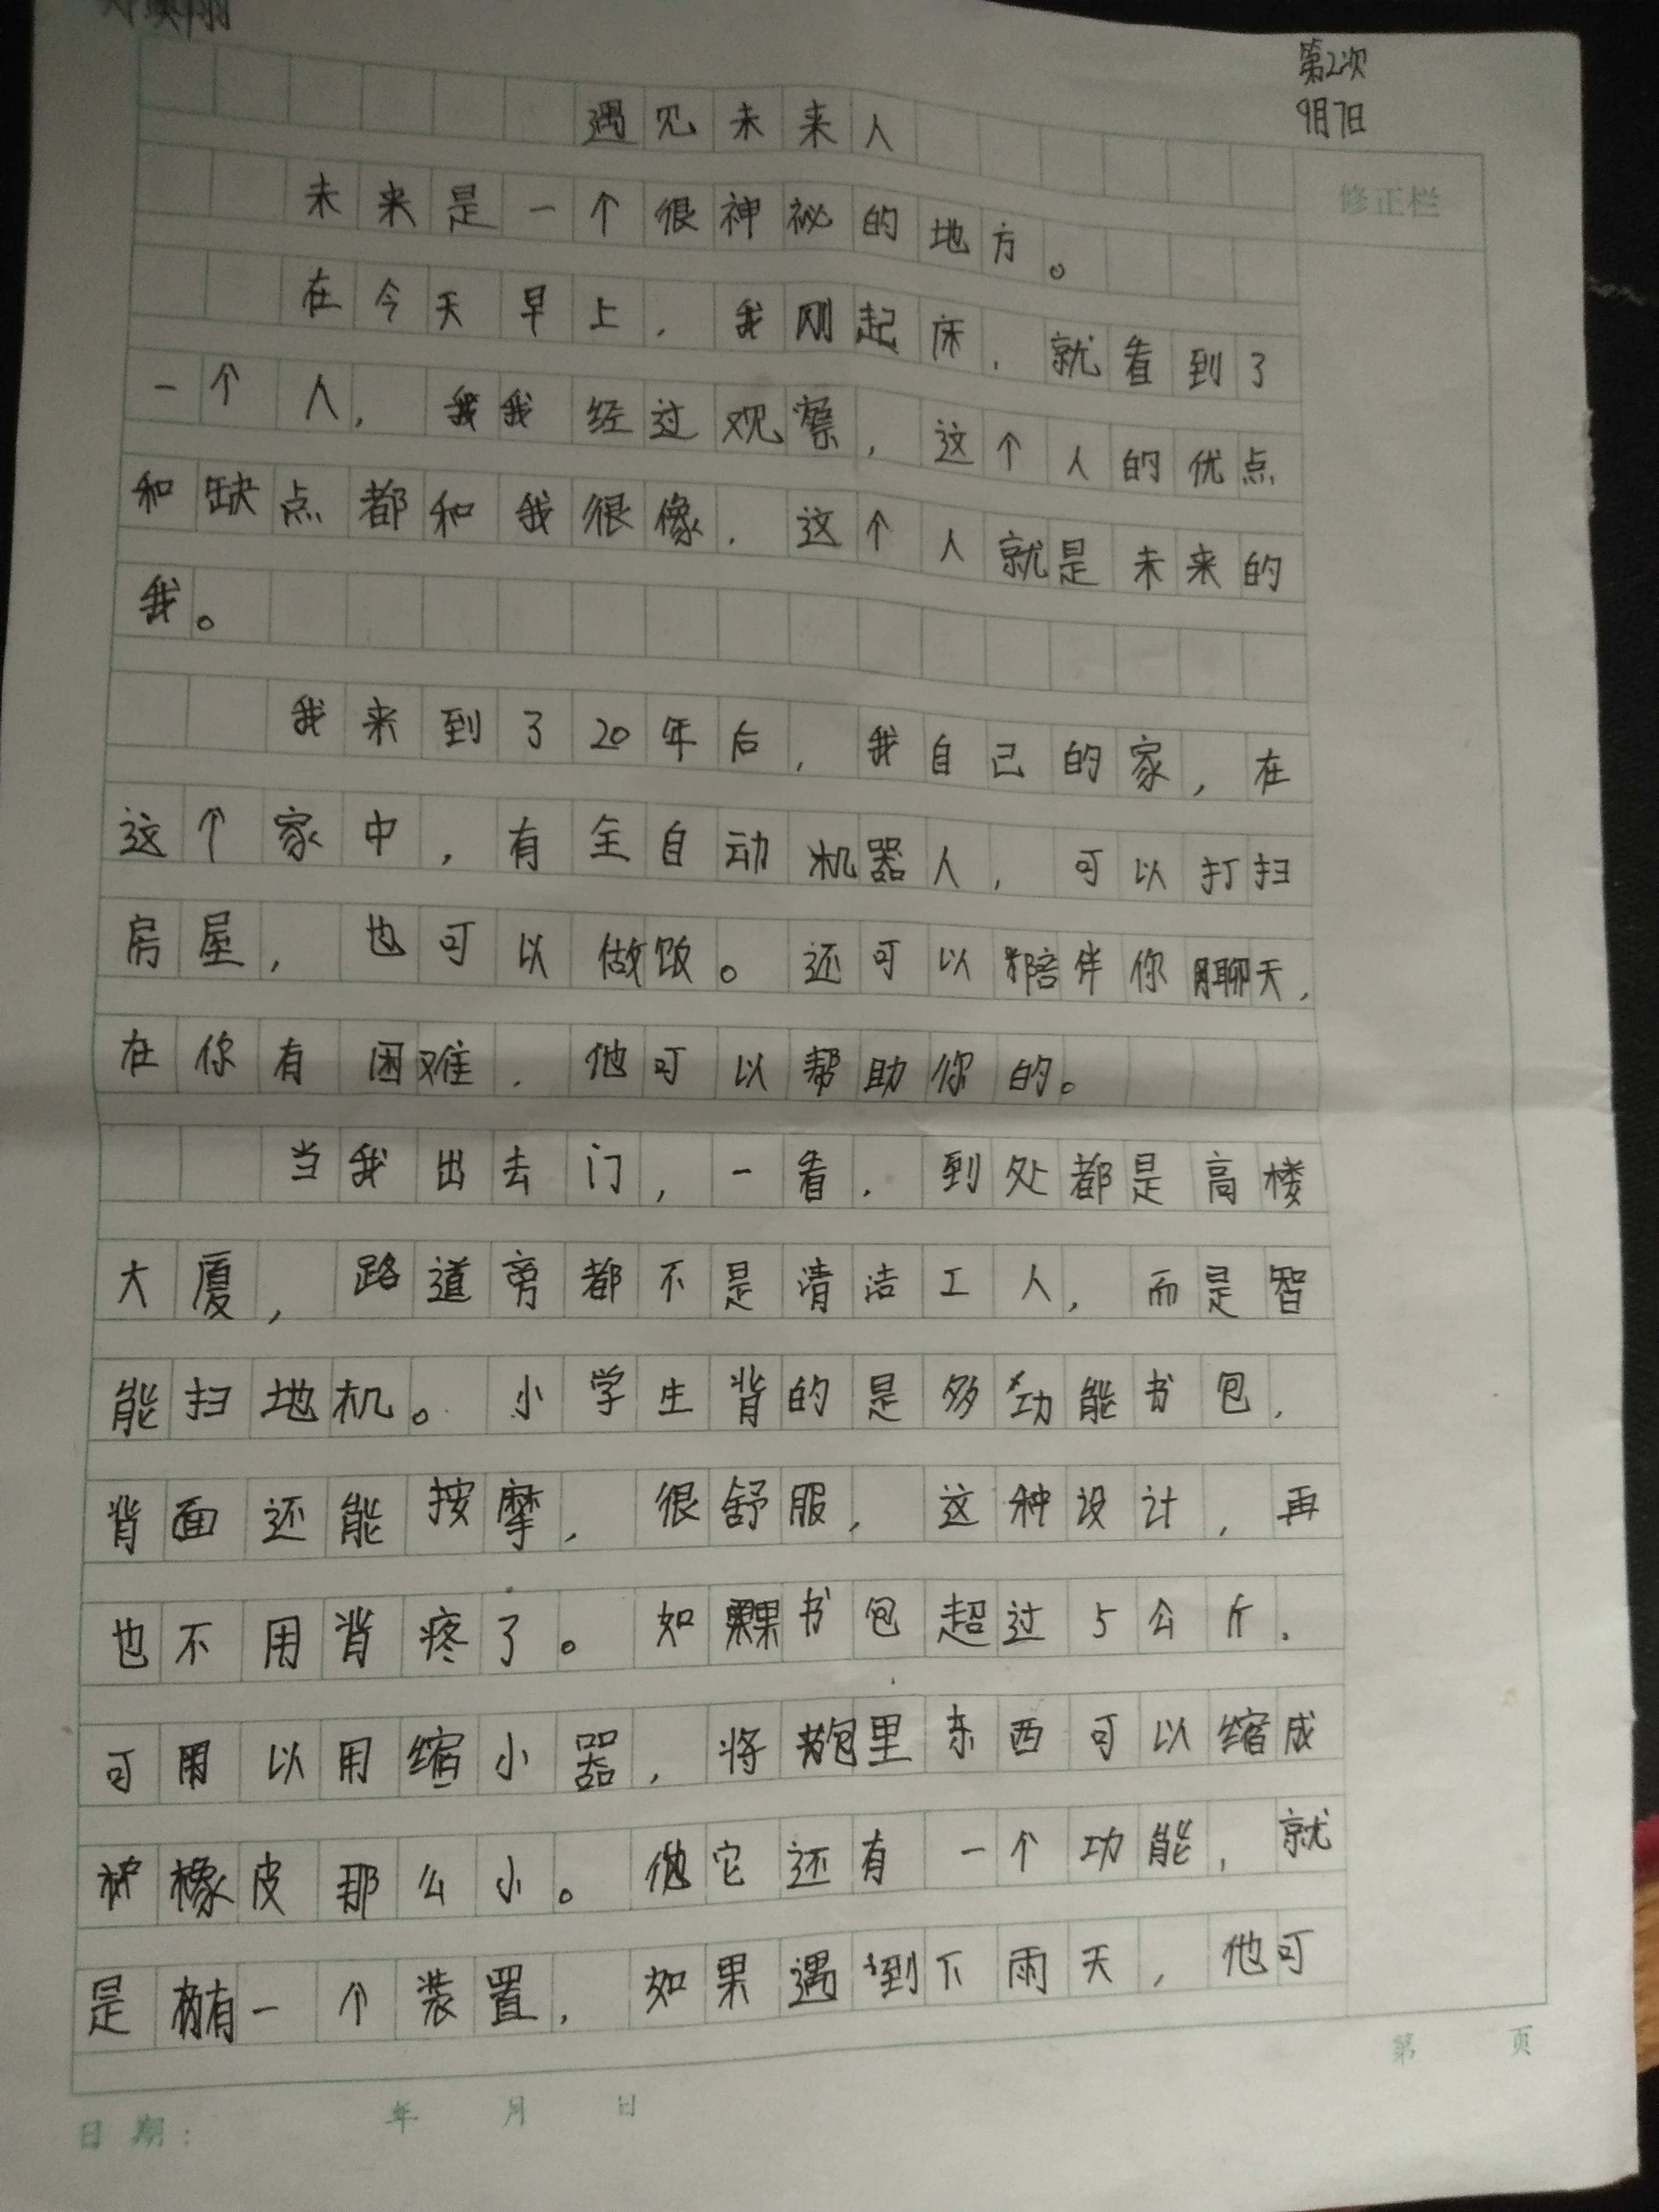 第2次
9月7日
遇见未来人
修正栏
未来是一个很神祕的地方。
在今天早上，我刚起床，就看到了
一个人，我我经过观察，这个人的优点
和缺点都和我很像，这个人就是未来的
我。
我来到了20年后，我自己的家，在
这个家中，有全自动机器人，可以打扫
房屋，也可以做饭。还可以陪伴你聊天，
在你有困难，他可以帮助你的。
当我出去门，一看，到处都是高楼
大厦，路道旁都不是清洁工人，而是智
能扫地机。小学生背的是多功能书包，
背面还能按摩，很舒服，这种设计，再
也不用背疼了。如果书包超过5公斤，
可用以用缩小器，将包里东西可以缩成
橡皮那么小。他它还有一个功能，就
是有一个装置，如果遇到下雨天，他可
第 页
日期： 年 月 日